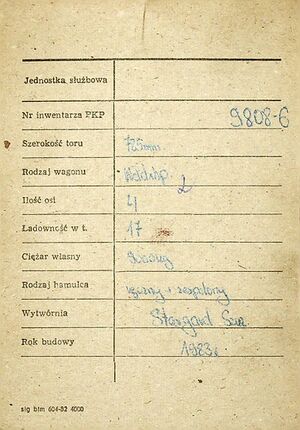 Jednostka służbowa
Nr inwentarza PKP 9808-6
Szerokość toru 785mm
Rodzaj wagonu
2
Ilość osi 4
Ładowność w t. 17
Ciężar własny
Rodzaj hamulca ręczny i zespolony
Wytwórnia Stargard Szcz
Rok budowy 1983r
sig btm 604-82 4000